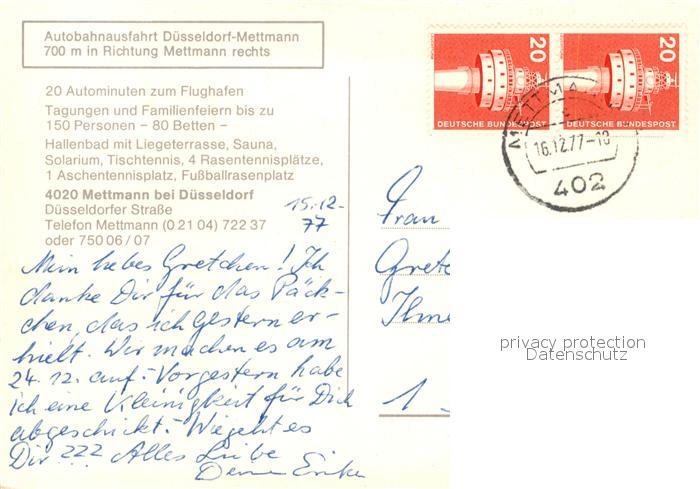 Autobahnausfahrt Düsseldorf-Mettmann
700 m in Richtung Mettmann rechts
20 Autominuten zum Flughafen
Tagungen und Familienfeiern bis zu
150 Personen – 80 Betten –
Hallenbad mit Liegeterrasse, Sauna,
Solarium, Tischtennis, 4 Rasentennisplätze,
1 Aschentennisplatz, Fußballrasenplatz
4020 Mettmann bei Düsseldorf
Düsseldorfer Straße
Telefon Mettmann (0 21 04) 722 37
oder 750 06 / 07
15.12.
77
Mein liebes Gretchen! Ich
danke Dir für das Päck-
chen, das ich gestern er-
hielt. Wir machen es am
24.12. auf. – Vorgestern habe
ich eine Kleinigkeit für Dich
abgeschickt. – Wie geht es
Dir ??? Alles Liebe
Deine Erika
20
20
DEUTSCHE BUNDESPOST
DEUTSCHE BUNDESPOST
METTMA
16.12.77-18
402
Frau
Grete
Ilme
1 -
privacy protection
Datenschutz